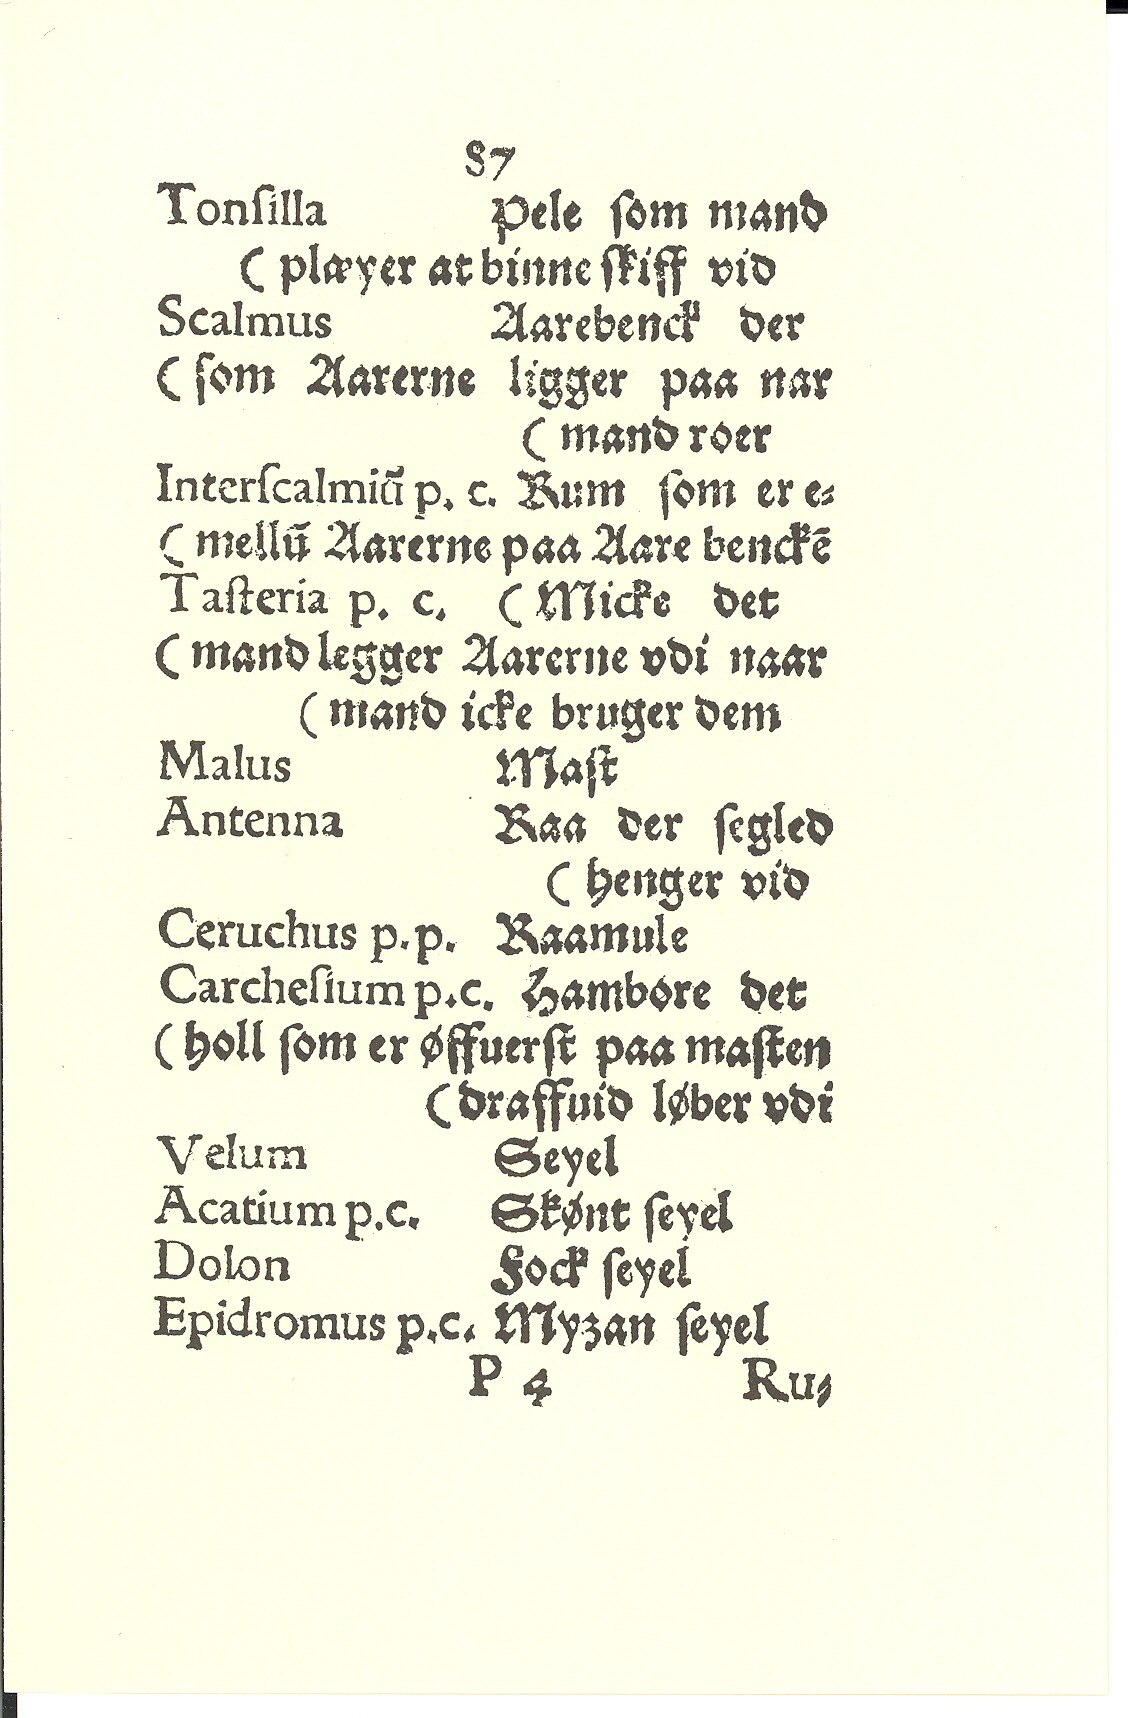 87
Tonſilla Pele ſom mand
( plæyer at binne ſkiff vid
Scalmus Aarebenck der
( ſom Aarerne ligger paa nar
( mand roer
Interſcalmiũ p. c. Rum ſom er e⸗
( mellū Aarerne paa Aare benckē
Taſteria p. c. ( Micke det
( mand legger Aarerne vdi naar
( mand icke bruger dem
Malus Maſt
Antenna Raa der ſegled
( henger vid
Ceruchus p.p. Raamule
Carcheſium p.c. Hambore det
( holl ſom er øffuerſt paa maſten
( draffuid løber vdi
Velum Seyel
Acatium p.c. Skønt ſeyel
Dolon Fock ſeyel
Epidromus p.c. Myzan ſeyel
P 4 Ru⸗